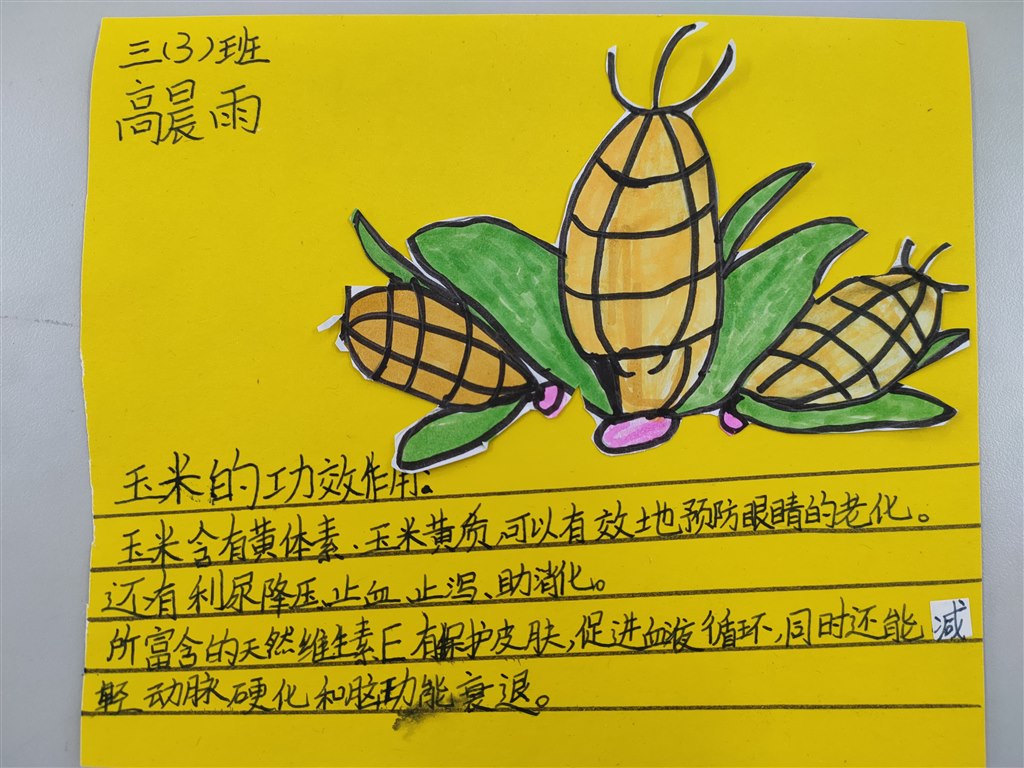 三(3)班
高晨雨
玉米的功效作用:
玉米含有黄体素、玉米黄质,可以有效地预防眼睛的老化。
还有利尿降压、止血、止泻、助消化。
所富含的天然维生素E有保护皮肤,促进血液循环,同时还能减
轻动脉硬化和脑功能衰退。